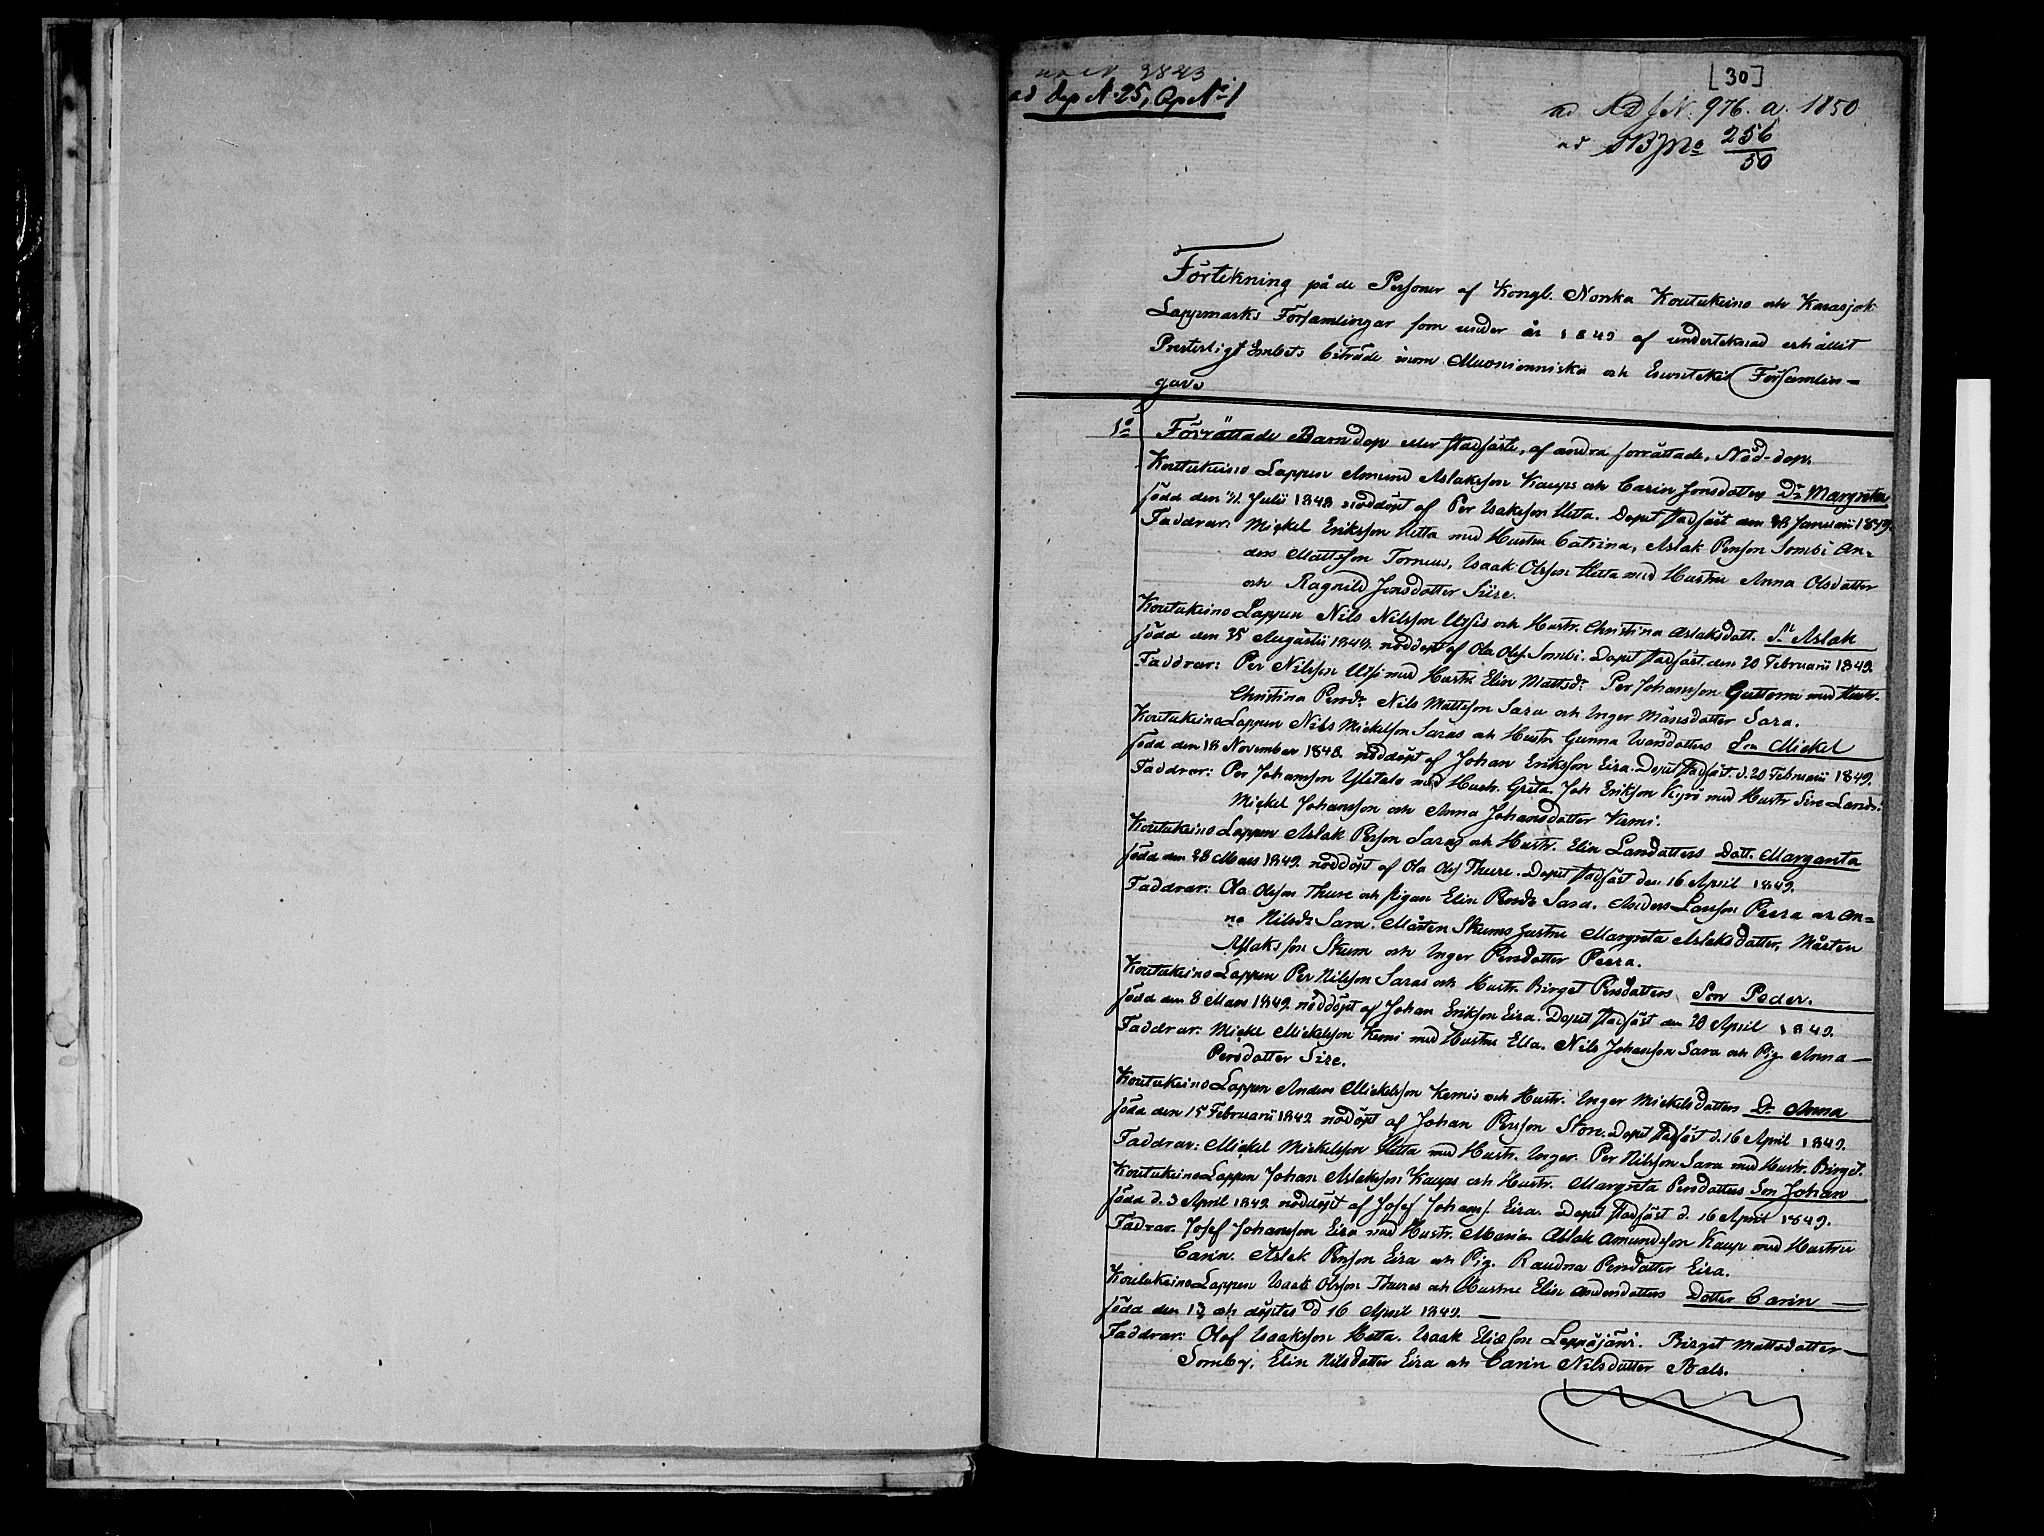 1843
ad dep N. 25, Op N: 1
[30]
ad KD J N. 976. a. 1850
ad SB J No 256/50
Förtekning på de Personer af Kongl. Norska Koutukeino och Karasjok
Lappmarks Församlingar som under år 1849 af underteknad erhållit
Presterligt Embets biträde inom Muonionniska och Enontekis Församlin-
gar
1o Förrättade Barndop eller stadfäste, af andra förrättade, Nöd-dop.
Koutukeino Lappen Amund Aslaksson Kaups och Carin Jonsdotters Dr Margreta
född den 21 Julii 1848 nöddöpt af Per Isaksson Hetta. Dopet stadfäst den 28 Januarii 1849.
Faddrar: Mickel Eriksson Hetta med Hustru Catrina, Aslak Persson Sombi An-
ders Mattsson Torneus, Isaak Olsson Hetta med Hustru Anna Olsdotter
och Ragnild Jonsdotter Siire.
Koutukeino Lappen Nils Nilsson Utsis och Hustr. Christina Aslaksdott. Sn Aslak
född den 25 Augustii 1848. nöddöpt af Ola Ols. Sombi. Dopet stadfäst. den 20 Februarii 1849.
Faddrar: Per Nilsson Utsi med Hustr. Elin Mattsdr. Per Johansson Guttorm med Hustr.
Christina Persdr. Nils Mattsson Sara och Inger Månsdotter Sara.
Koutukeino Lappen Nils Mickelsson Saras och Hustr. Gunna Ivarsdotters Son Mickel
född den 18 November 1848. nöddöpt af Johan Eriksson Eira. Dopet stadfäst. d. 20 Februarii 1849.
Faddrar: Per Johansson Yletalo med Hustr. Greta. Joh Eriksson Kyrö med Hustr Sire Larsdr.
Mickel Johansson och Anna Johansdotter Kemi.
Koutukeino Lappen Aslak Persson Saras och Hustr. Elin Larsdotters Dott. Margareta
född den 28 Mars 1849. nöddöpt af Ola Ols Thure. Dopet stadfäst den 16 April 1849.
Faddrar: Ola Olsson Thure och pigan Elin Persdr Sara. Anders Larsson Peera och An-
na Nilsdr Sara. Mårten Skums hustru Margreta Aslaksdotter, Mårten
Aslaksson Skum och Inger Persdotter Peera.
Koutukeino Lappen Per Nilsson Saras och Hustr. Birget Persdotters Son Peder.
född den 8 Mars 1849. nöddöpt af Johan Eriksson Eira. Dopet stadfäst den 20 April 1849.
Faddrar: Mickel Mickelsson Kemi med Hustru Ella. Nils Johansson Sara och Pig. Anna
Persdotter Sire.
Koutukeino Lappen Anders Mickelsson Kemis och Hustr. Inger Mickelsdotters Dr Anna
född den 15 Februarii 1849 nödöpt af Johan Persson Stor. Dopet stadfäst d. 16 April 1849.
Faddrar: Mickel Mickelsson Hetta med Hustr. Inger. Per Nilsson Sara med Hustr. Birget.
Koutukeino Lappen Johan Aslaksson Kaups och Hustr. Margreta Persdotters Son Johan
född d. 3 April 1849. nöddöpt af Josef Johanss. Eira. Dopet stadfäst d. 16 April 1849.
Fadrar. Josef Johansson Eira med Hustr. Maria. Aslak Amundsson Kaup med Hustru
Carin. Aslak Persson Eira och Pig. Raudna Persdotter Eira.
Koutukeino Lappen Isaak Olsson Thures och Hustru Elin Andersdotters Dotter Carin
född den 13 och döptes d 16 April 1849.
Faddrar: Olof Isaaksson Hetta. Isaak Eliæson Leppäjärvi. Birget Mattsdotter
Somby, Elin Nilsdotter Eira och Carin Nilsdotter Bals.